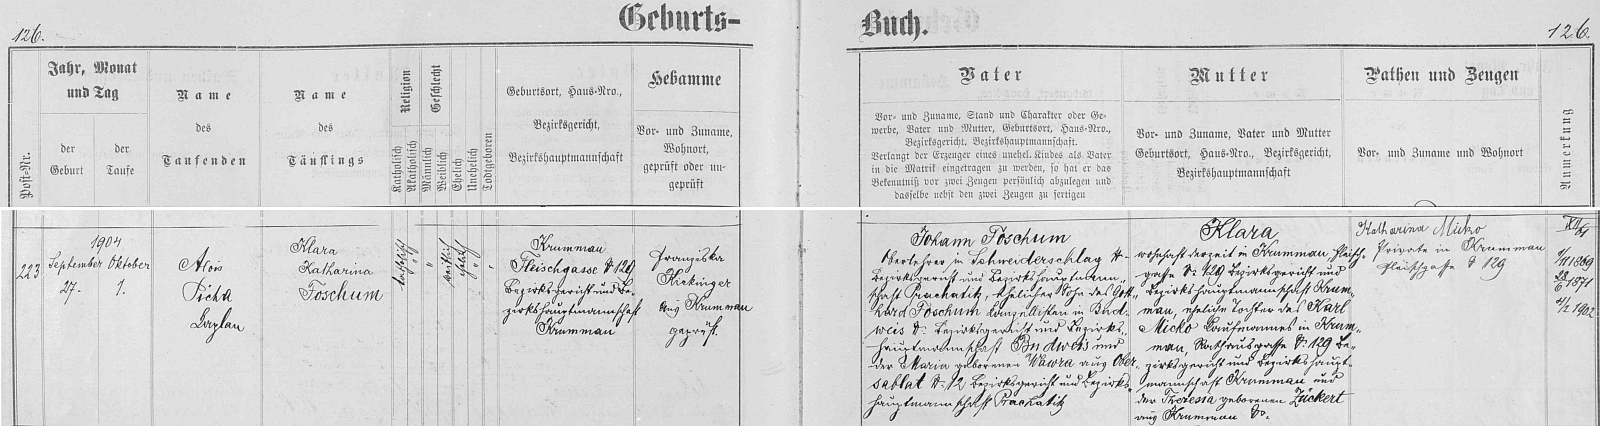 126.
Geburts-
Buch.
126.
Post-Nr.
Jahr, Monat
und Tag
der
Geburt
der
Taufe
Name
des
Taufenden
Name
des
Täuflings
Religion
Katholisch
Akatholisch
Geschlecht
Männlich
Weiblich
Ehelich
Unehelich
Todtgeboren
Geburtsort, Haus-Nro.,
Bezirksgericht,
Bezirkshauptmannschaft
Hebamme
Vor- und Zuname,
Wohnort,
geprüft oder un-
geprüft
Vater
Vor- und Zuname, Stand und Charakter oder Ge-
werbe, Vater und Mutter, Geburtsort, Haus-Nro.,
Bezirksgericht, Bezirkshauptmannschaft.
Verlangt der Erzeuger eines unehel. Kindes als Vater
in die Matrik eingetragen zu werden, so hat er das
Bekenntniß vor zwei Zeugen persönlich abzulegen und
dasselbe nebst den zwei Zeugen zu fertigen
Mutter
Vor- und Zuname, Vater und Mutter
Geburtsort, Haus-Nro., Bezirksgericht,
Bezirkshauptmannschaft
Pathen und Zeugen
Vor- und Zuname und Wohnort
Anmerkung
223
1904
September
27.
Oktober
1.
Alois
Picha
Kaplan
Klara
Katharina
Foschum
katholisch
"
weiblich
ehelich
"
Krummau
Fleischgasse № 129
Bezirksgericht und Be-
zirkshauptmannschaft
Krummau
Franziska
Kickinger
aus Krummau
geprüft.
Johann Foschum
Oberlehrer in Schneiderschlag №
Bezirksgericht und Bezirkshauptmann-
schaft Prachatitz, ehelicher Sohn des Gott-
hard Foschum Kanzellisten in Bud-
weis № Bezirksgericht und Bezirks-
hauptmannschaft Budweis und
der Maria geborenen Wawra aus Ober-
sablat № 12 Bezirksgericht und Bezirks-
hauptmannschaft Prachatitz
Klara
wohnhaft derzeit in Krummau, Fleisch-
gasse № 129 Bezirksgericht und
Bezirkshauptmannschaft Krum-
mau, eheliche Tochter des Karl
Micko Kaufmannes in Krum-
mau, Rathausgasse № 129 Be-
zirksgericht und Bezirkshaupt-
mannschaft Krummau und
der Theresia geborenen Zückert
aus Krummau №
Katharina Micko
Private in Krummau
Fleischgasse № 129
1869
1871
1902